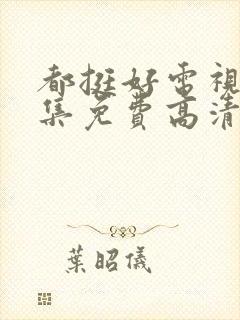 都挺好電視
集免費高清
葉昭儀